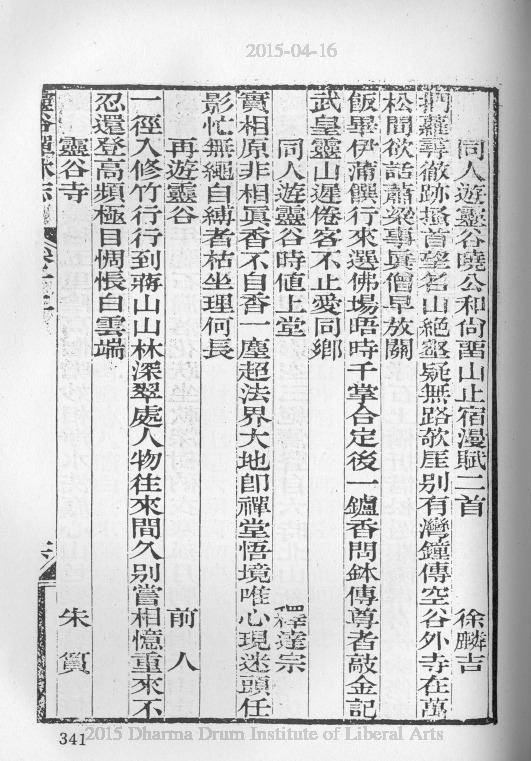 2015-04-16
同人遊靈谷曉公和尚畱山止宿漫賦二首 徐麟吉
捫蘿尋徹跡搔首望名山絕壑疑無路欹厓別有灣鐘傳空谷外寺在萬
松間欲話蕭梁事眞僧早放關
飯畢伊蒲饌行來選佛場晤時千掌合定後一鑪香問鉢傳尊者敲金記
武皇靈山遲倦客不止愛同鄉
同人遊靈谷時値上堂 釋達宗
實相原非相眞香不自香一塵超法界大地卽禪堂悟境唯心現迷頭任
影忙無繩自縛者枯坐理何長
再遊靈谷 前人
一徑入修竹行行到蔣山山林深翠處人物往來間久別嘗相憶重來不
忍還登高頻極目惆悵白雲端
靈谷寺 朱
靈谷禪林志 卷十二
341
2015 Dharma Drum Institute of Liberal Arts